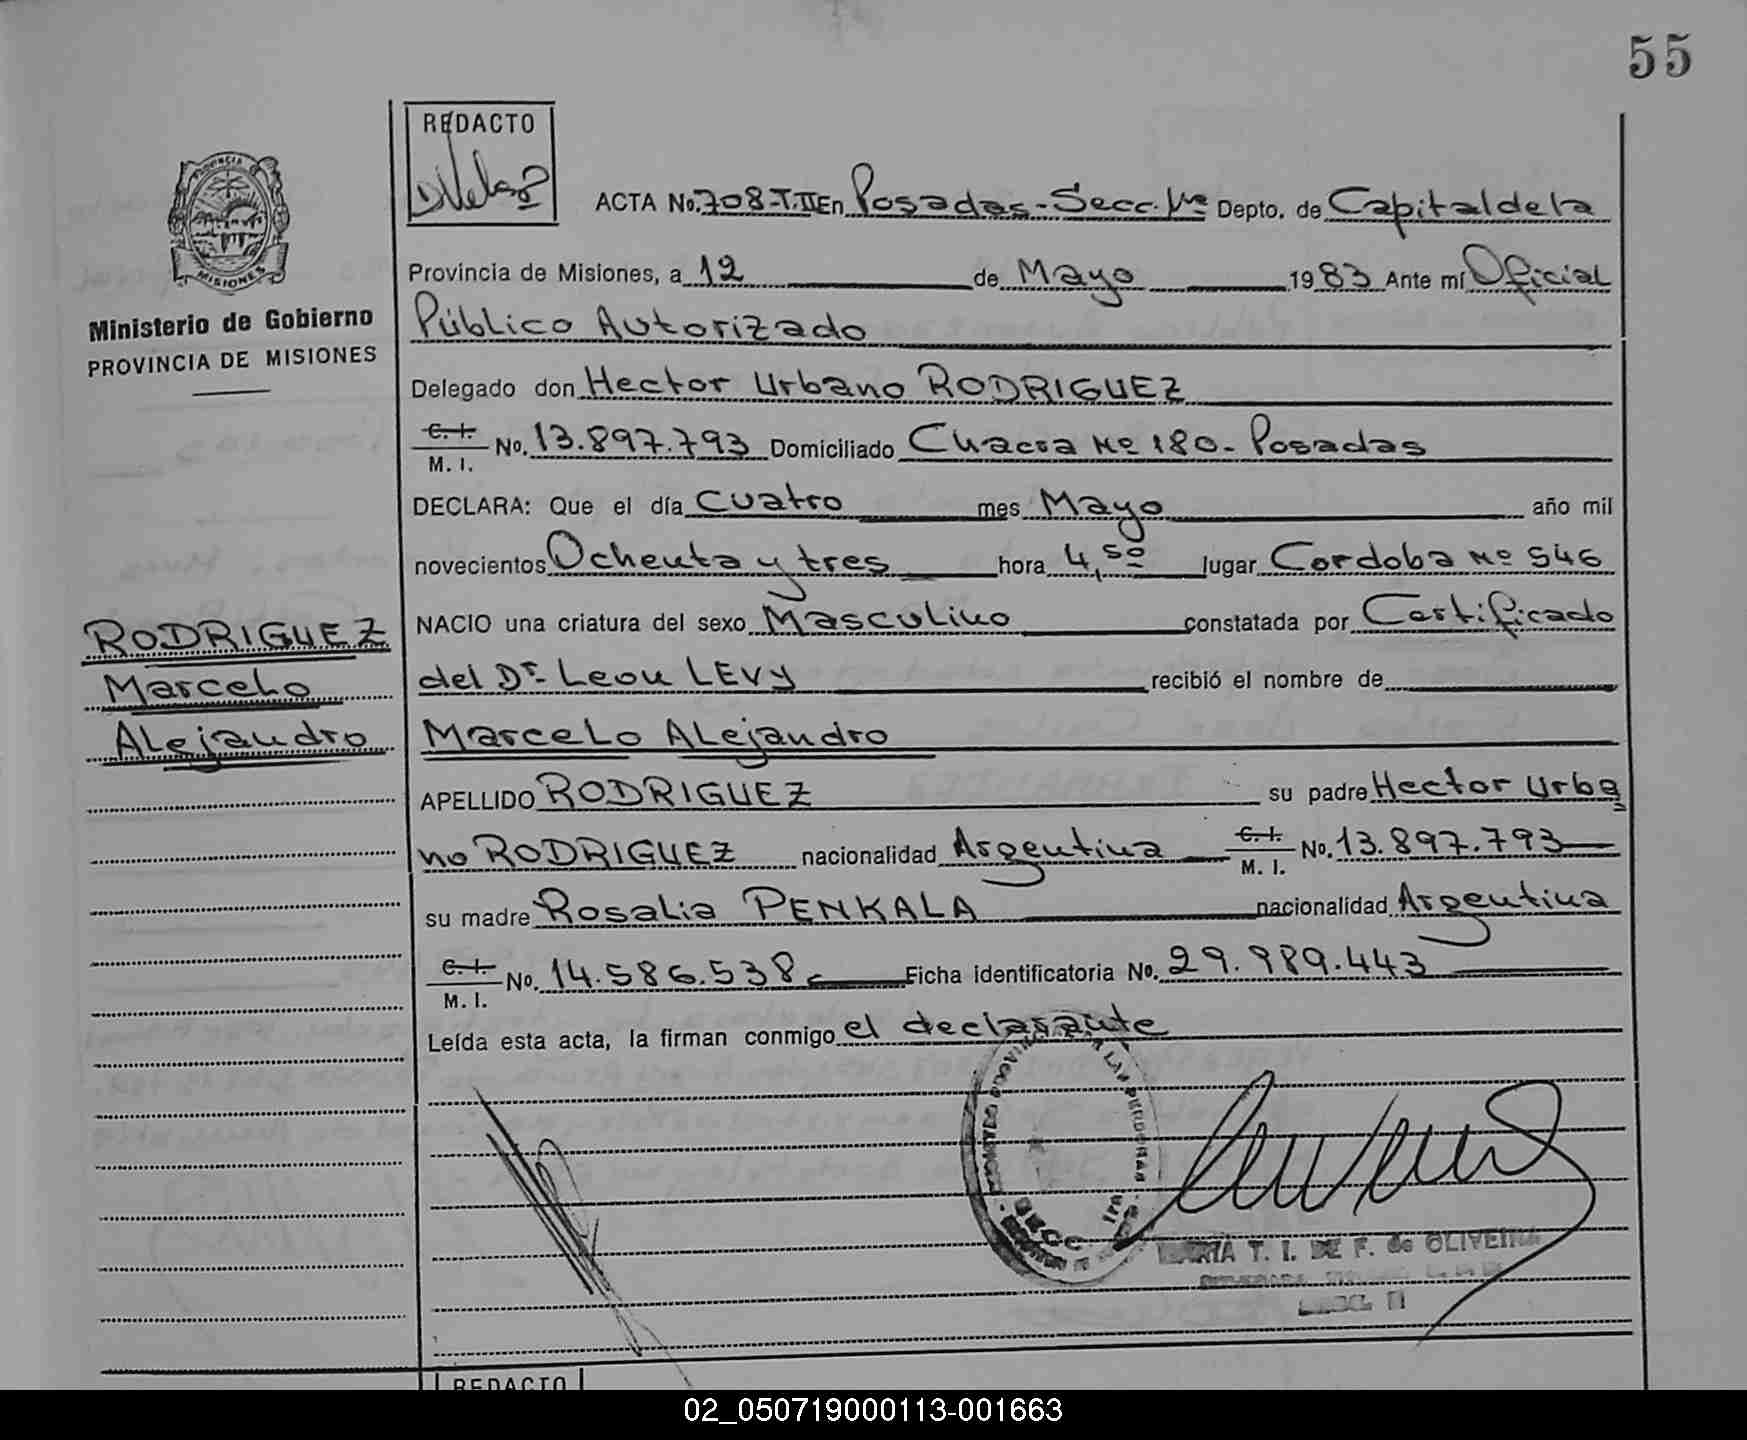 55
REDACTO
ACTA No. 708-T.II En Posadas-Secc. 1ra Depto. de Capital de la
PROVINCIA
MISIONES
Provincia de Misiones, a 12 de Mayo 1983 Ante mí Oficial
Ministerio de Gobierno
PROVINCIA DE MISIONES
Público Autorizado
Delegado don Hector Urbano RODRIGUEZ
C. I.
M. I. No. 13.897.793 Domiciliado Chacra Nº 180- Posadas
DECLARA: Que el día Cuatro mes Mayo año mil
novecientos Ochenta y tres hora 4,50 lugar Cordoba Nº 546
NACIO una criatura del sexo Masculino constatada por Certificado
del Dr. Leon LEVY recibió el nombre de
RODRIGUEZ
Marcelo
Alejandro
Marcelo Alejandro
APELLIDO RODRIGUEZ su padre Hector Urba
no RODRIGUEZ nacionalidad Argentina C. I.
M. I. No. 13.897.793
su madre Rosalia PENKALA nacionalidad Argentina
C. I.
M. I. No. 14.586.538 Ficha identificatoria No. 29.989.443
Leída esta acta, la firman conmigo el declarante
SECC. 1ra
MARIA T. I. DE F. de OLIVEIRA
REDACTO
02_050719000113-001663